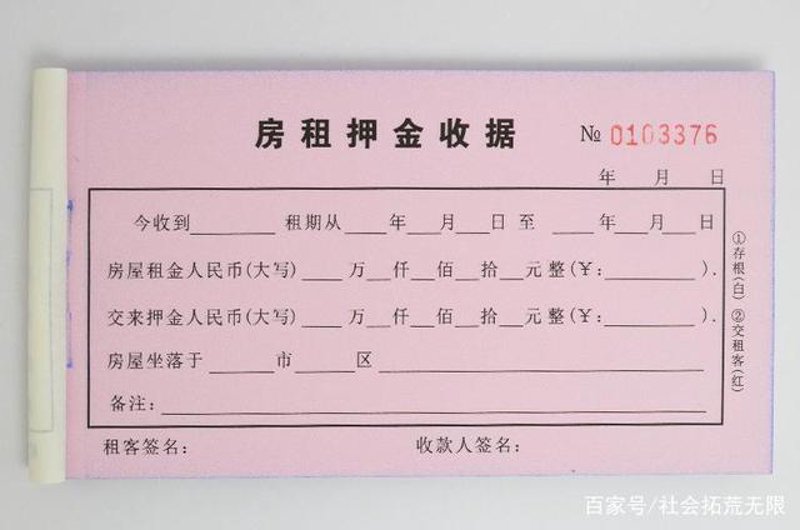 房租押金收据 № 0103376
年 月 日
今收到________ 租期从____年___月___日 至 ____年___月___日
房屋租金人民币(大写)____万___仟___佰___拾___元整(¥:________).
交来押金人民币(大写)____万___仟___佰___拾___元整(¥:________).
房屋坐落于______市______区______________________________
备注:____________________________________________
租客签名: 收款人签名:
①存根(白) ②交租客(红)
百家号/社会拓荒无限